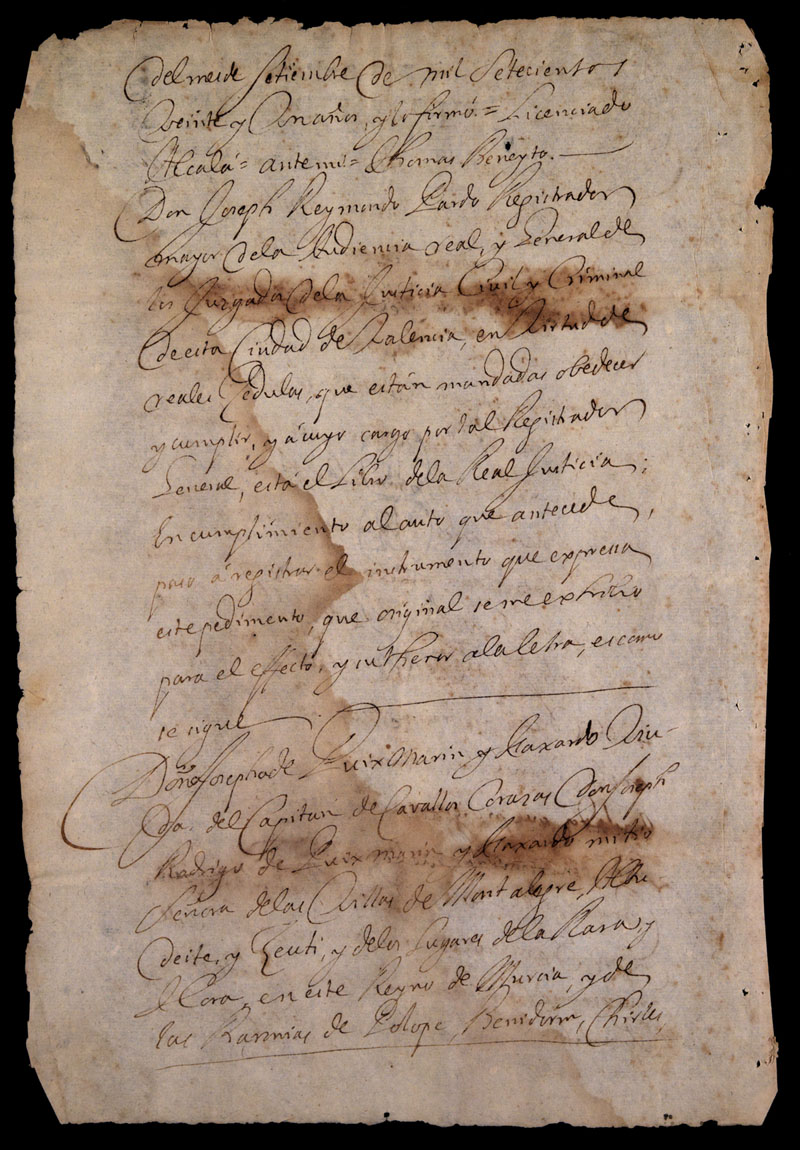 del mes de Setiembre de mil Setecientos
veinte y un años, y lo firmó = Licenciado
Alcalá = ante mi = Thomas Beneyto.
Don Joseph Reymondo Pardo Registrador
mayor de la Audiencia real, y General de
los Juzgados de la Justicia Civil y Criminal
de esta Ciudad de Valencia, en virtud de
reales Cedulas, que están mandadas obedecer
y cumplir, y á cuyo cargo por tal Registrador
General, está el Libro de la Real Justicia;
En cumplimiento al auto que antecede,
paso á registrar el instrumento que expressa
este pedimento, que original se me exhivio
para el effecto, y su thenor a la letra, es como
se sigue
Doña Josepha de Puixmarin y Faxardo Viu-
da del Capitan de Cavallos Corazas Don Joseph
Rodrigo de Puixmarin y Faxardo mi tio
Señora de las Villas de Montalegre, Albu-
deite, y Zeuti, y de los Lugares de la Raya, y
Ñora, en este Reyno de Murcia, y de
las Baronias de Polope, Benidorm, Chirles,